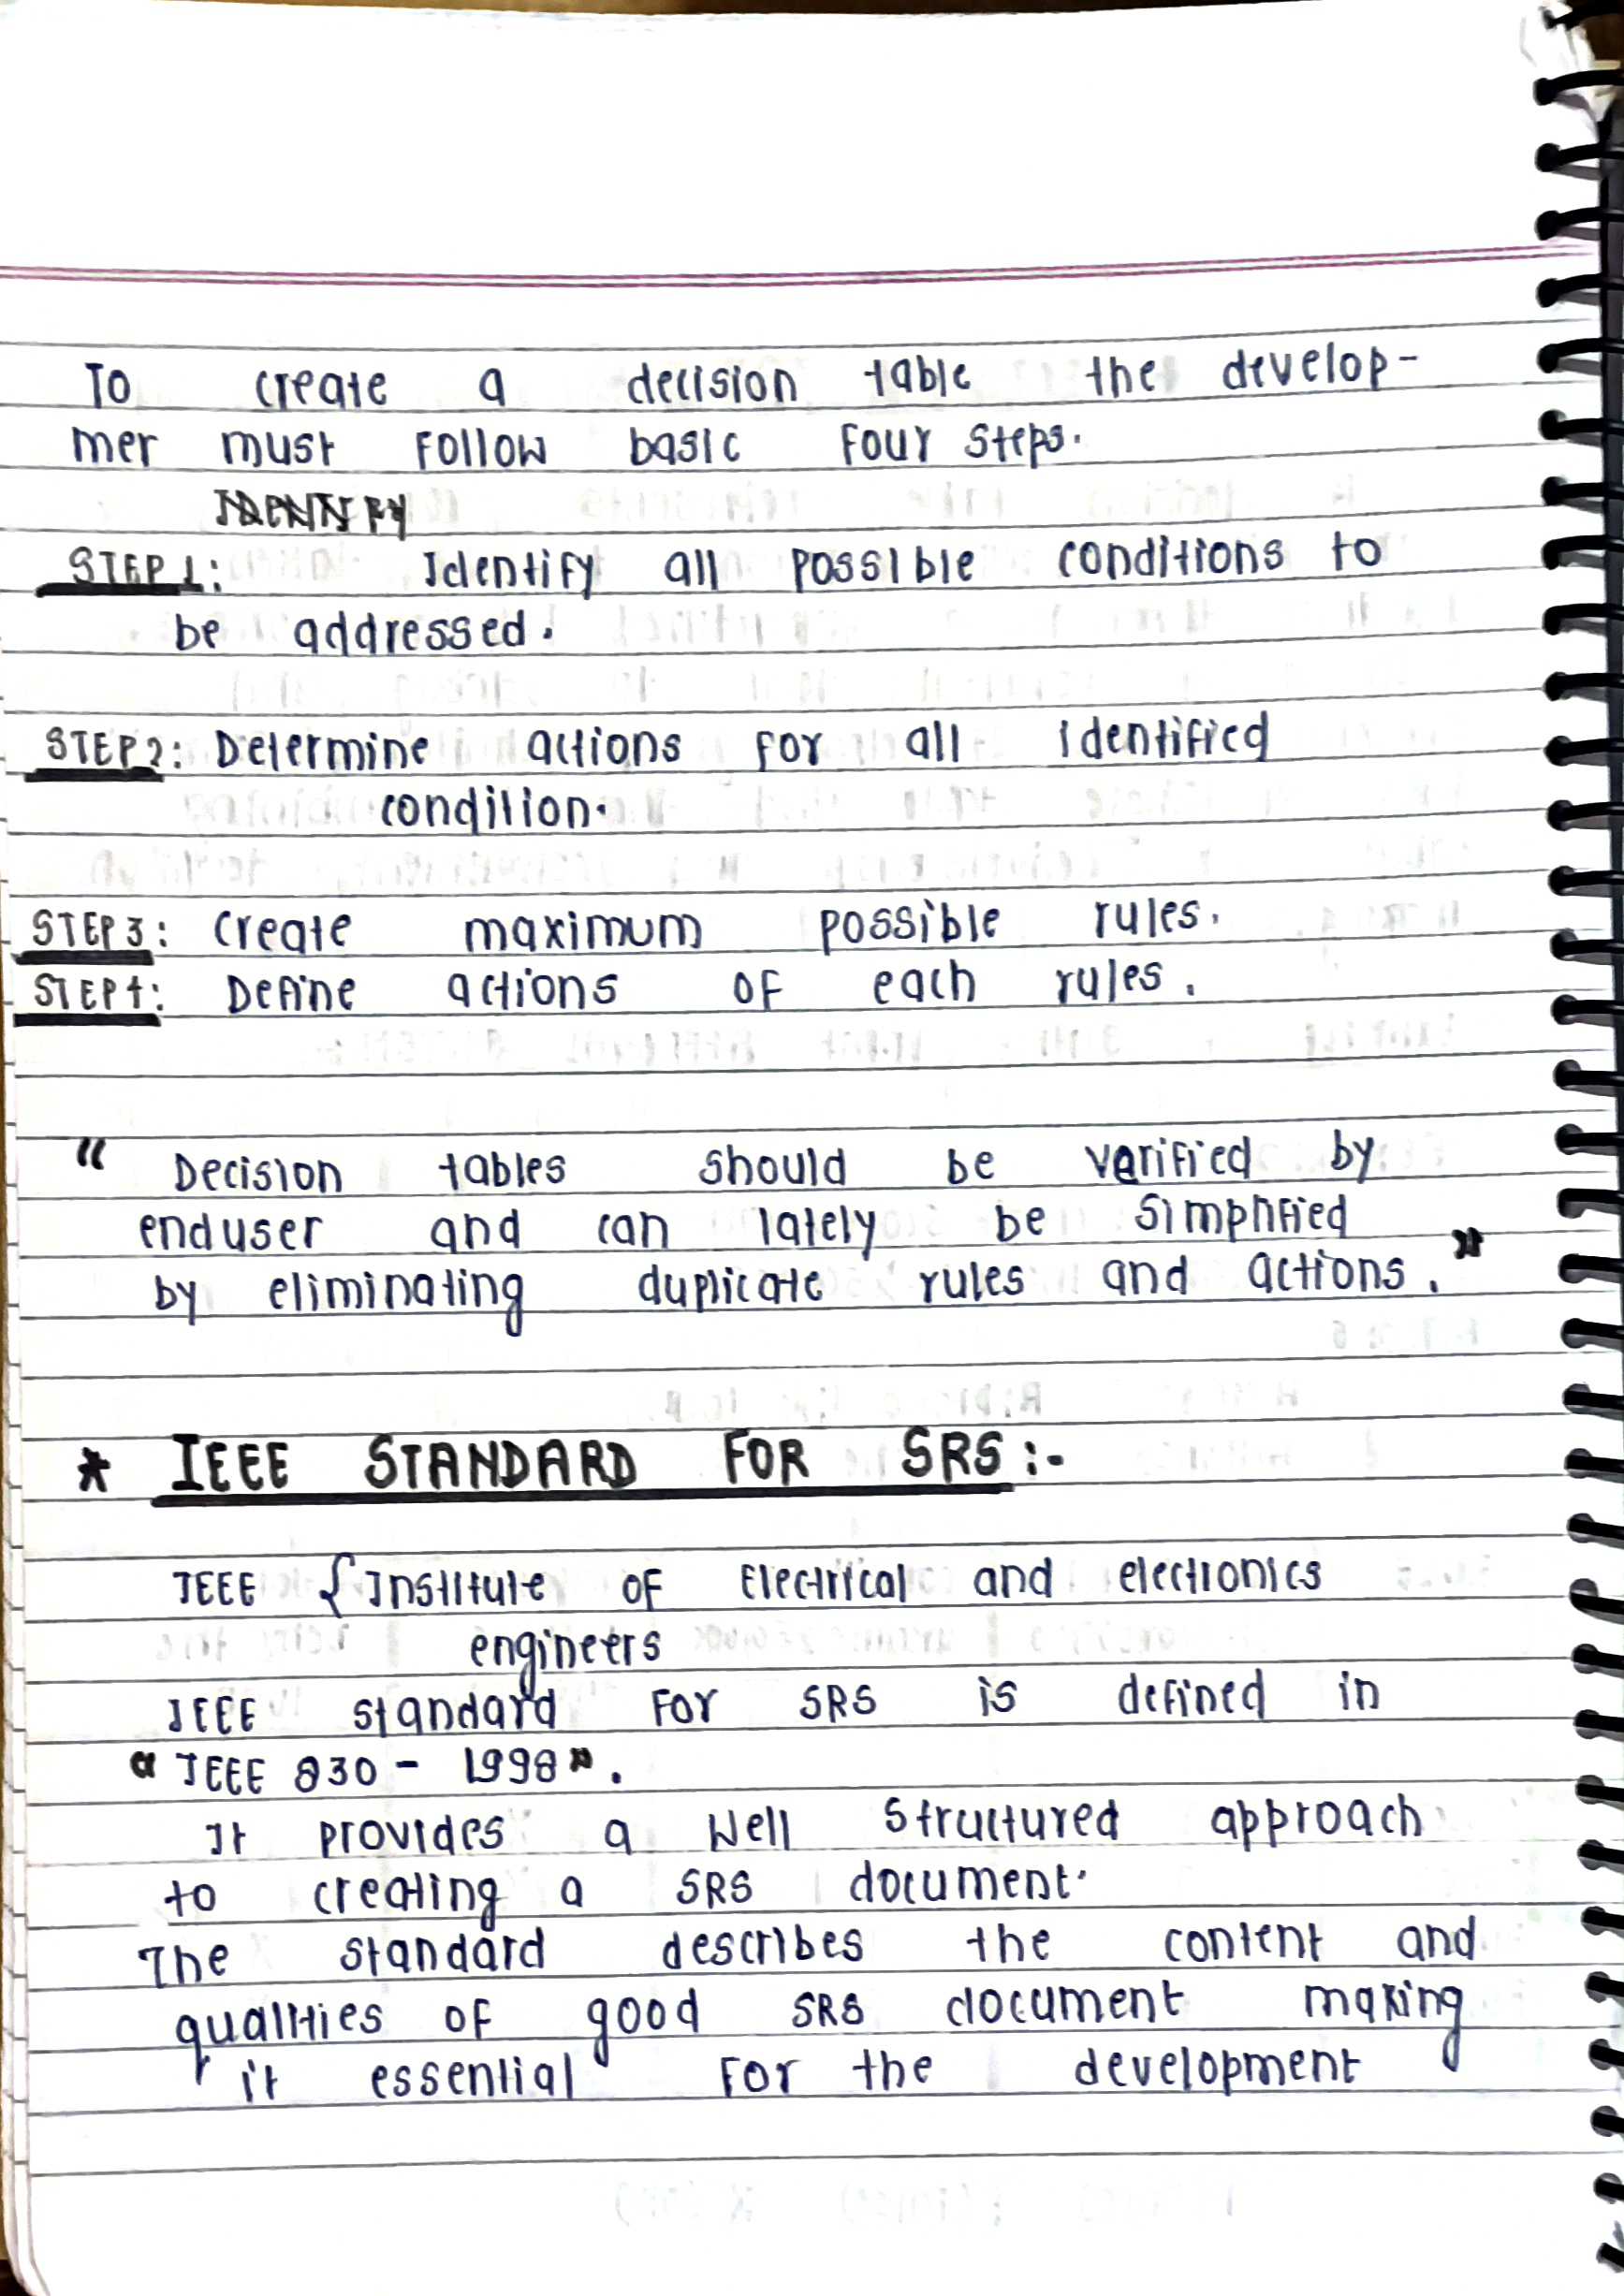 To create a decision table the develop-
mer must Follow basic Four steps.
STEP 1: Identify all possible conditions to
be addressed.
STEP 2: Determine actions For all identified
condition.
STEP 3: create maximum possible rules.
STEP 4: Define actions OF each rules.
“ Decision tables should be verified by
enduser and can lately be simplified
by eliminating duplicate rules and actions. ”
* IEEE STANDARD FOR SRS :-
IEEE { Institute OF Electrical and electronics
engineers
IEEE standard For SRS is defined in
“ IEEE 830 - 1998 ” .
It provides a Well structured approach
to creating a SRS document.
The standard describes the content and
qualities OF good SRS document making
it essential For the development